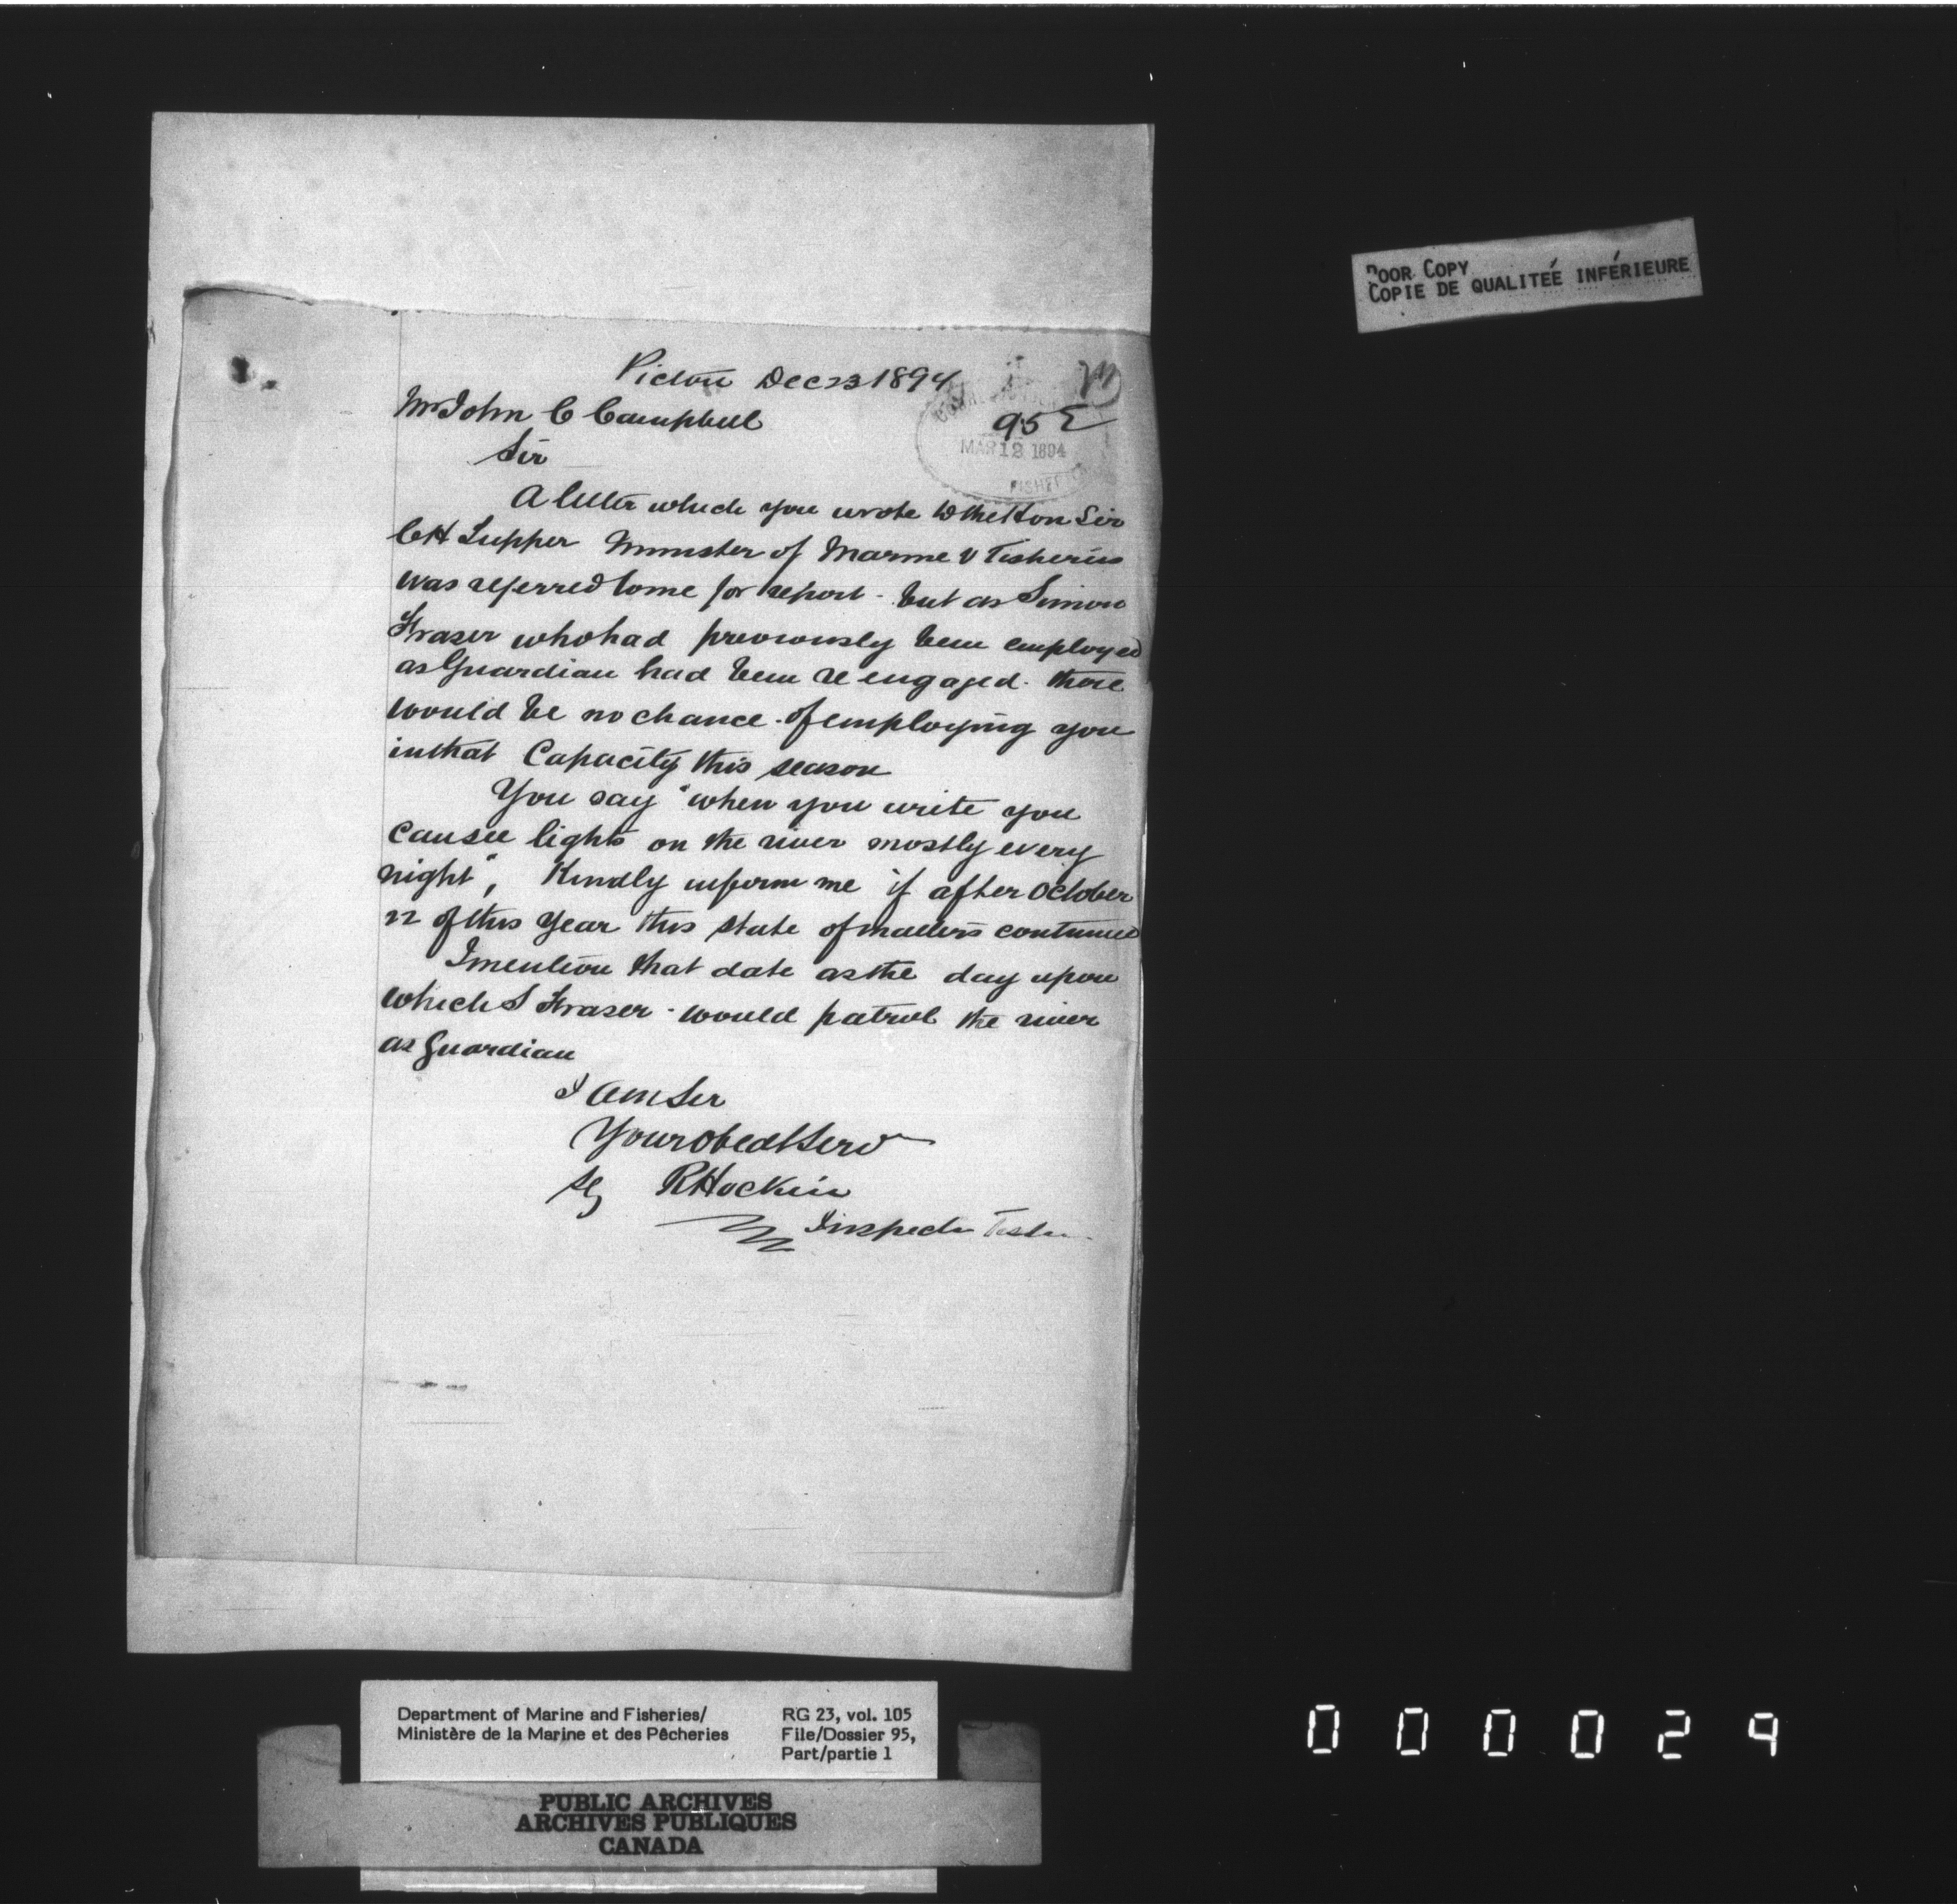 POOR COPY
COPIE DE QUALITEÉ INFÉRIEURE
Pictou Dec 23 1894
Mr John C Campbell
95
MAR 12 1894
FISHERIES
Sir
A letter which you wrote to the Hon Sir
CH Tupper Minister of Marine & Fisheries
was referred to me for report - but as Simon
Fraser who had previously been employed
as Guardian had been re engaged. there
would be no chance of employing you
in that Capacity this season
You say "when you write you
can see lights on the river mostly every
night", Kindly inform me if after October
22 of this Year this state of matters continued
I mention that date as the day upon
which S Fraser would patrol the river
as Guardian
I am Sir
Your obedt Serv
Sg R Hockin
Inspector
Department of Marine and Fisheries/
Ministère de la Marine et des Pêcheries
RG 23, vol. 105
File/Dossier 95,
Part/partie 1
PUBLIC ARCHIVES
ARCHIVES PUBLIQUES
CANADA
000029